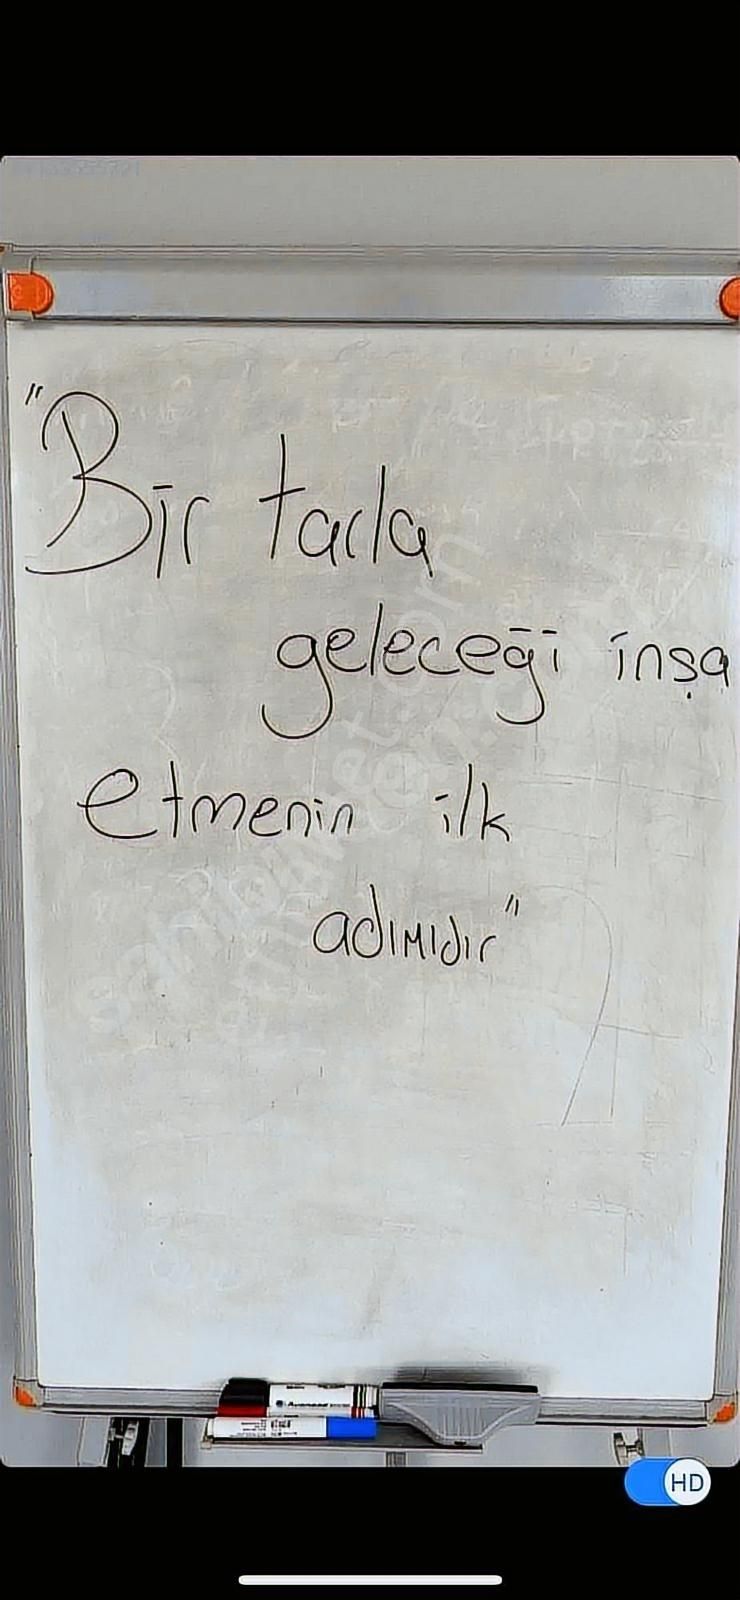 "Bir tarla
geleceği inşa
etmenin ilk
adımıdır"
sahibinden.com
HD